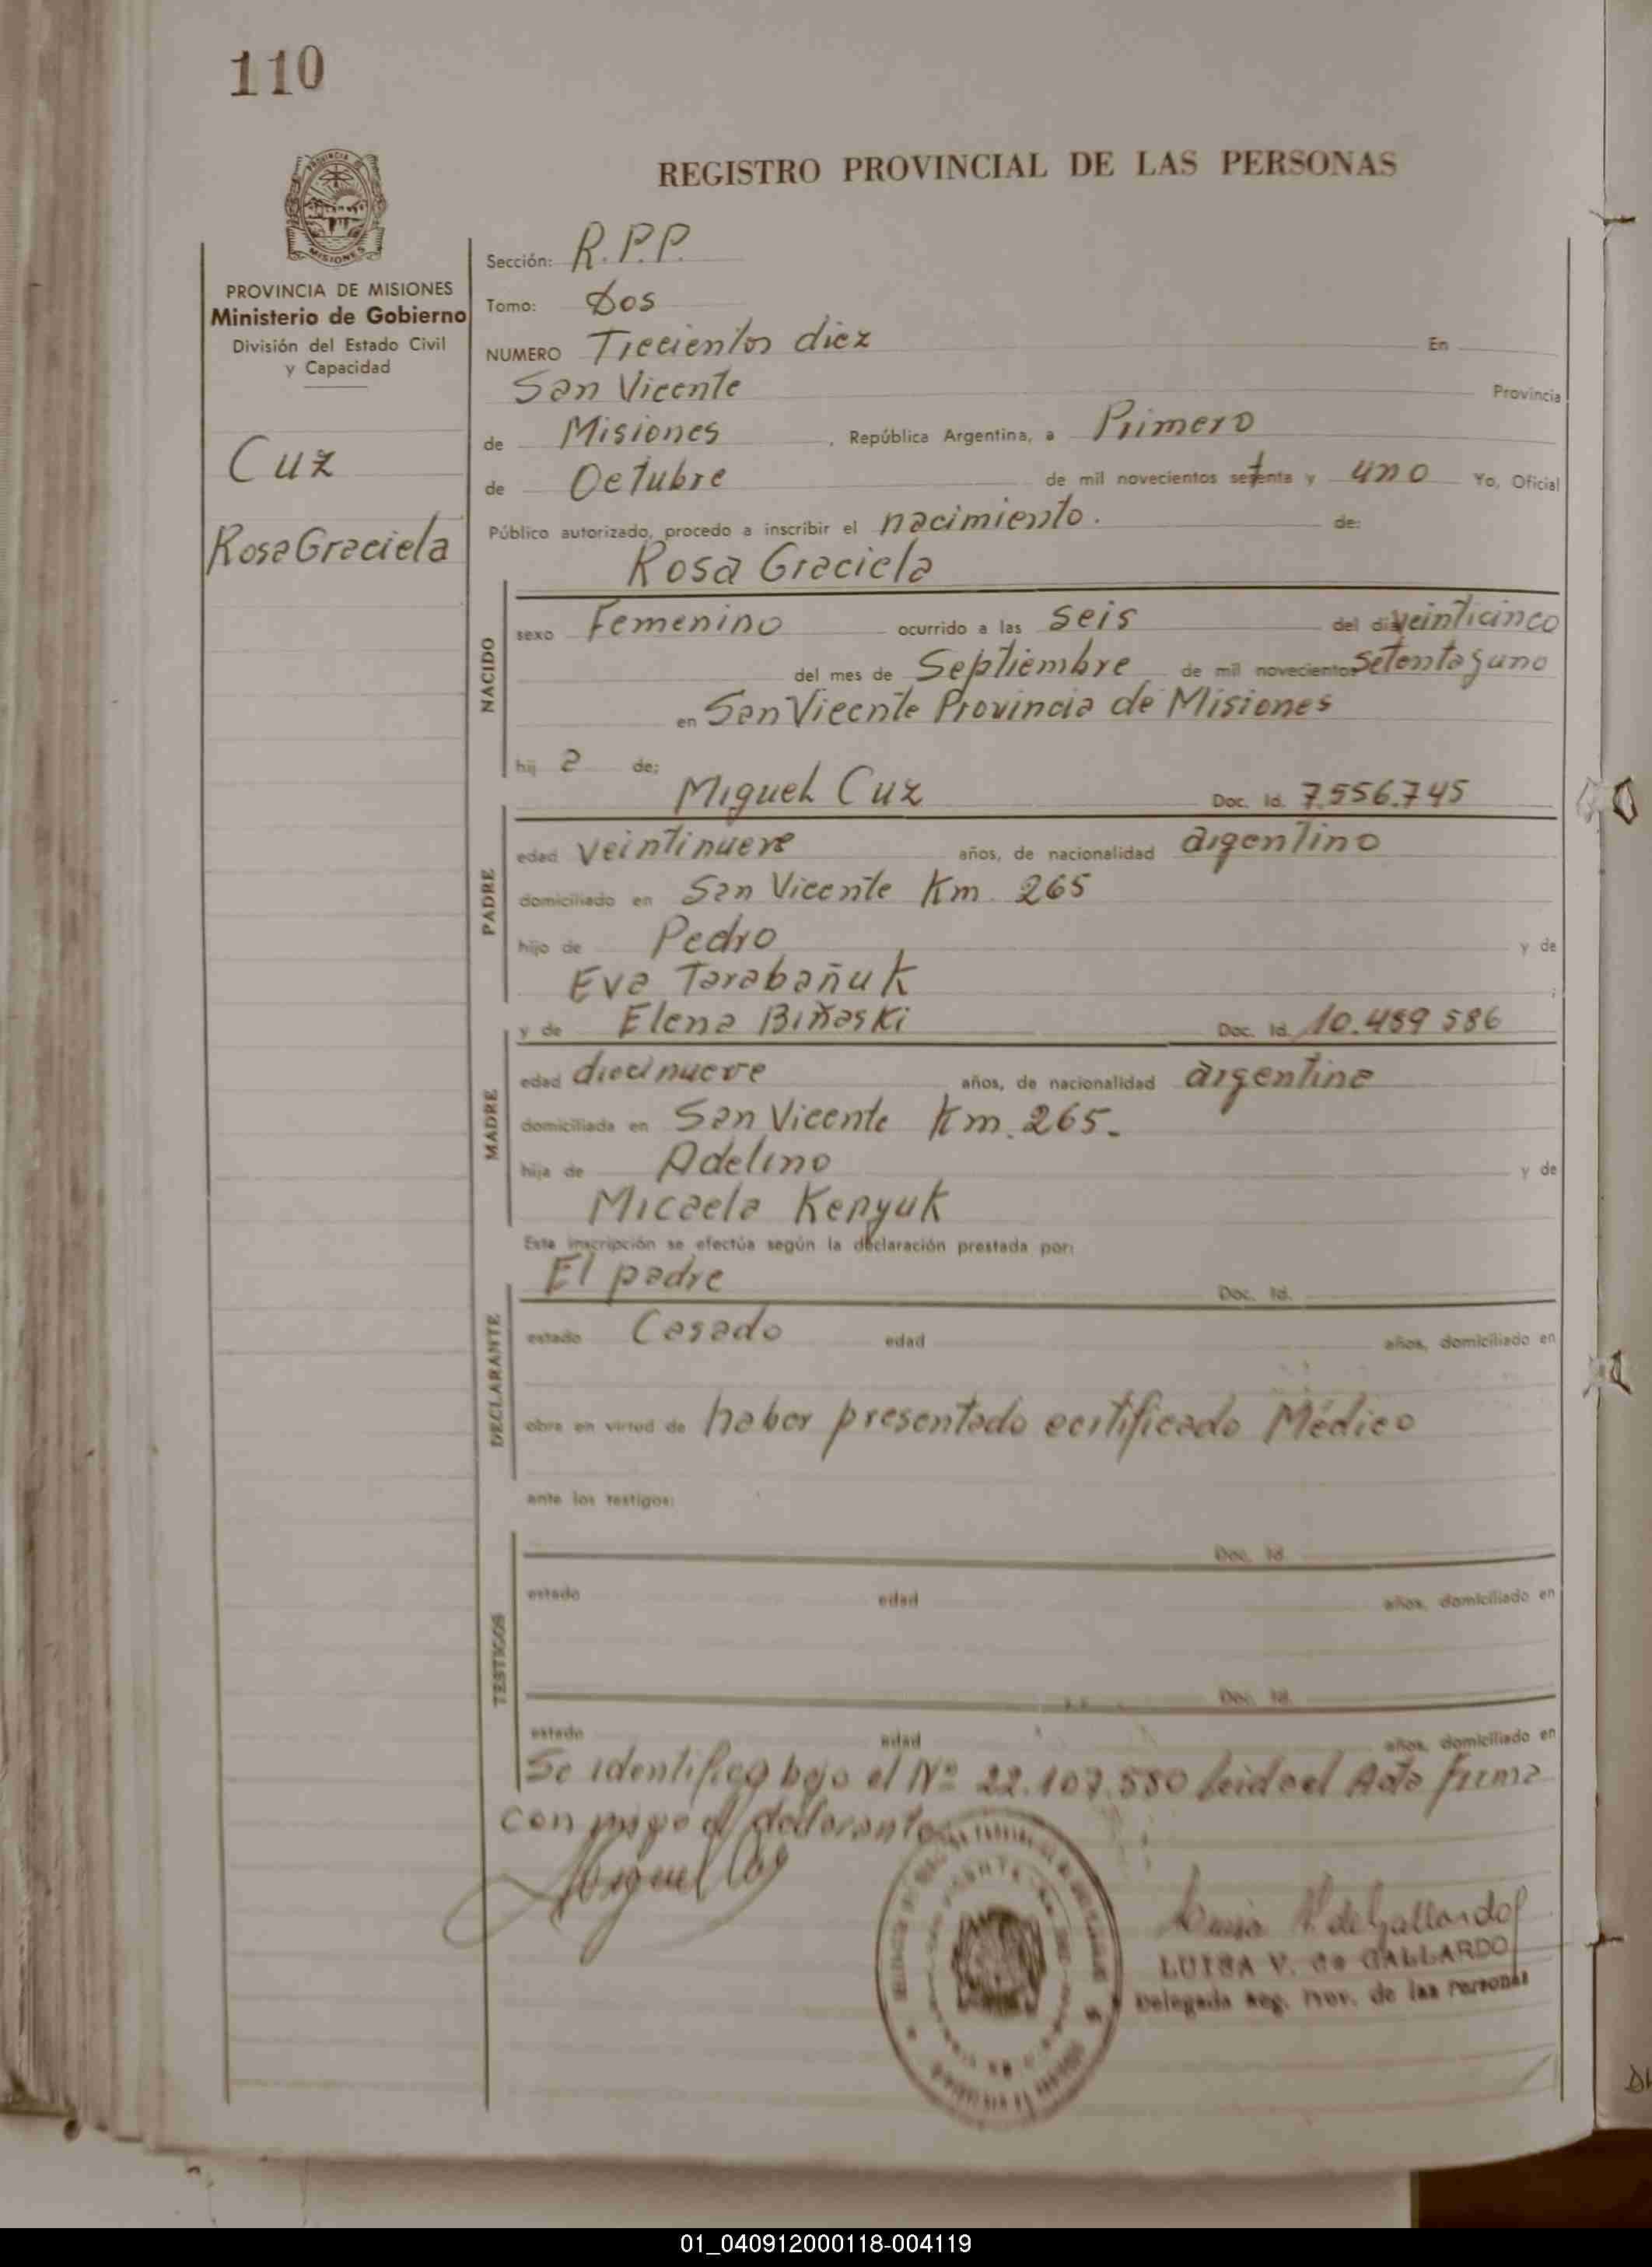 110
REGISTRO PROVINCIAL DE LAS PERSONAS
PROVINCIA DE
MISIONES
PROVINCIA DE MISIONES
Ministerio de Gobierno
División del Estado Civil
y Capacidad
Cuz
Rosa Graciela
Sección: R.P.P.
Tomo: Dos
NUMERO Trecientos diez En
San Vicente Provincia
de Misiones, República Argentina, a Primero
de Octubre de mil novecientos setenta y uno Yo, Oficial
Público autorizado, procedo a inscribir el nacimiento. de:
Rosa Graciela
NACIDO
sexo Femenino ocurrido a las seis del día veinticinco
del mes de Septiembre de mil novecientos setenta y uno
en San Vicente Provincia de Misiones
hij a de:
Miguel Cuz Doc. Id. 7.556.745
PADRE
edad veintinueve años, de nacionalidad argentino
domiciliado en San Vicente Km. 265
hijo de Pedro y de
Eva Tarabañuk ;
y de Elena Biñaski Doc. Id. 10.489 586
MADRE
edad diecinueve años, de nacionalidad argentina
domiciliada en San Vicente Km. 265.-
hija de Adelino y de
Micaela Kenyuk
Esta inscripción se efectúa según la declaración prestada por:
El padre Doc. Id.
DECLARANTE
estado Casado edad años, domiciliado en
obra en virtud de haber presentado certificado Médico
ante los testigos:
Doc. Id.
TESTIGOS
estado edad años, domiciliado en
Doc. Id.
estado edad años, domiciliado en
Se identifica bajo el Nº 22.107.580 leida el Acta firma
con migo el declarante
Miguel Cuz
Luisa V. de Gallardo
LUISA V. de GALLARDO
Delegada Reg. Prov. de las Personas
01_040912000118-004119